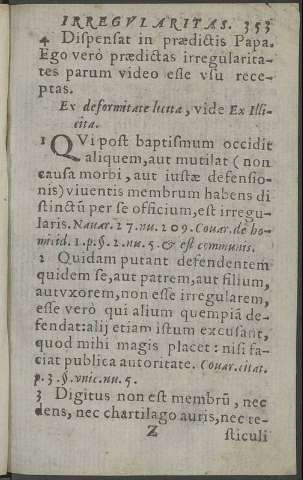 IRREGVLARITAS. 353
4 Dispensat in prædictis Papa.
Ego verò prædictas irregularita-
tes parum video esse vsu rece-
ptas.
Ex deformitate licita, vide Ex Illi-
cita.
1 QVi post baptismum occidit
aliquem, aut mutilat (non
causa morbi, aut iustæ defensio-
nis) viuentis membrum habens di
stinctũ per se officium, est irregu-
laris. Nauar. 27. nu. 209. Couar. de ho-
micid. 1. p. §. 2. nu. 5. & est communis.
2 Quidam putant defendentem
quidem se, aut patrem, aut filium,
aut vxorem, non esse irregularem,
esse verò qui alium quempiã de-
fendat: alij etiam istum excusant,
quod mihi magis placet: nisi fa-
ciat publica autoritate. Couar. citat.
p. 3. §. vnic. nu. 5.
3 Digitus non est membrũ, nec
dens, nec chartilago auris, nec te-
Z sticuli